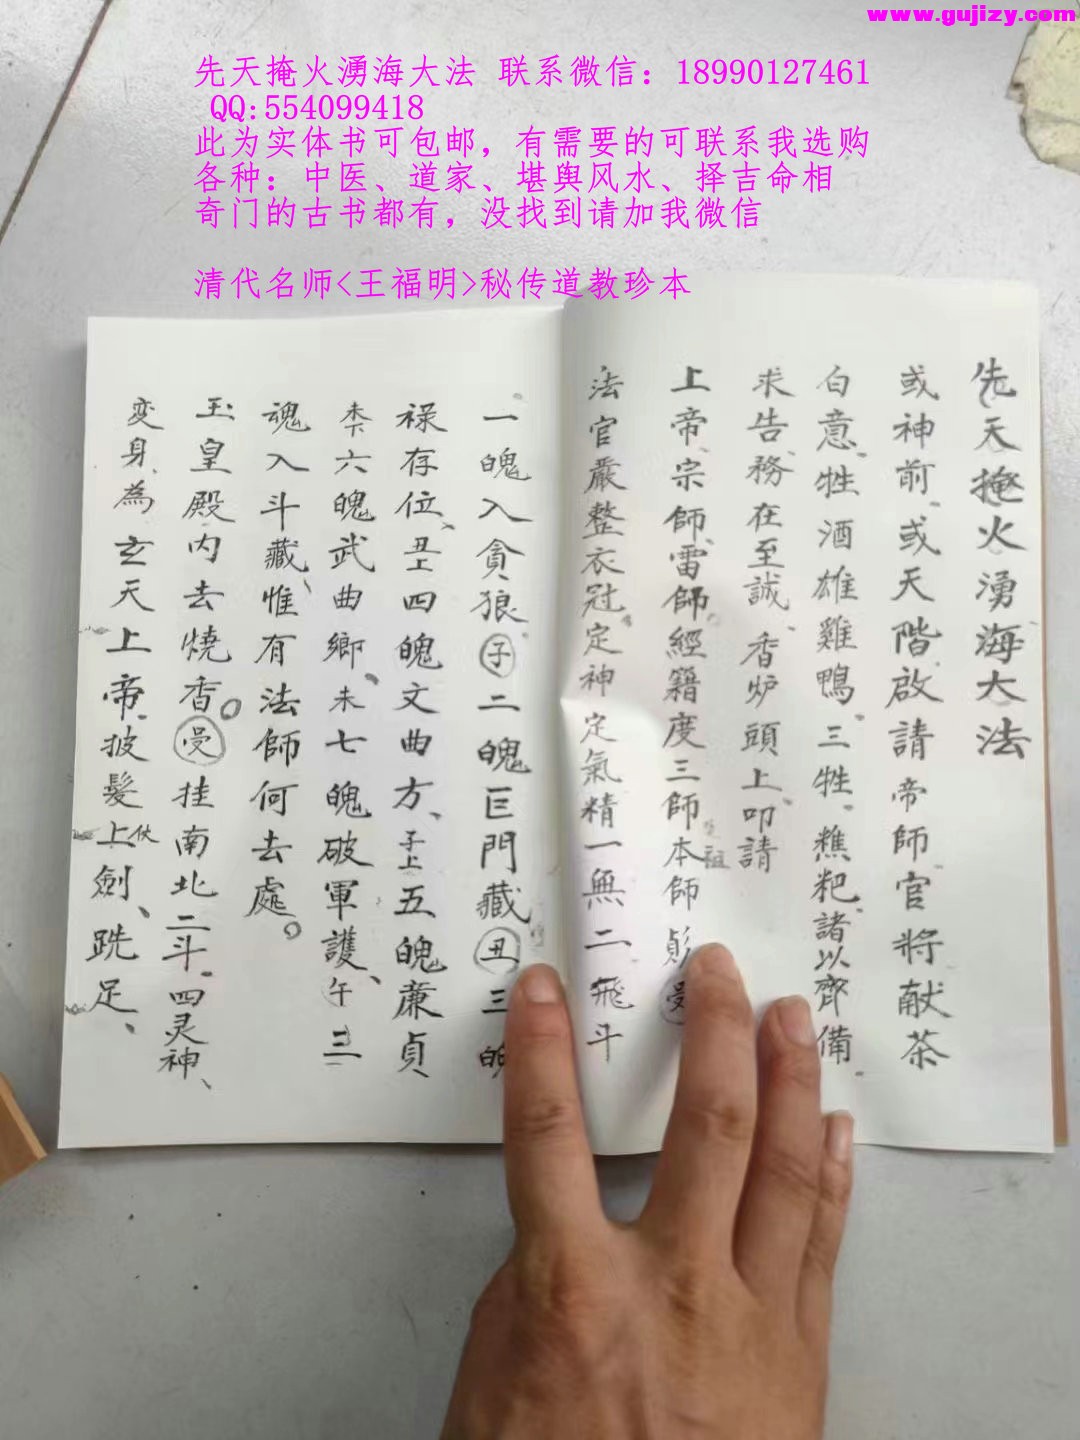 www.gujizy.com
先天掩火湧海大法 联系微信：18990127461
QQ:554099418
此为实体书可包邮，有需要的可联系我选购
各种：中医、道家、堪舆风水、择吉命相
奇门的古书都有，没找到请加我微信
清代名师<王福明>秘传道教珍本
先天掩火湧海大法
或神前、或天階啟請帝師官将献茶
白意牲酒雄雞鴨、三牲。糕粑、諸以齊備。
求告、務在至誠、香炉頭上、叩請
上帝、宗師、雷師、經籍度三師本祖師
法官嚴整衣冠。定神定氣精一無二飛斗
一魄入貪狼子二魄巨門藏丑三魄
禄存位、丑上四魄文曲方、子上五魄廉貞
六魄武曲鄉、未七魄破軍護、午三
魂入斗藏、惟有法師何去處。
玉皇殿内去燒香。受挂南北二斗、四灵神、
変身為玄天上帝、披髮上仗劍、跣足、